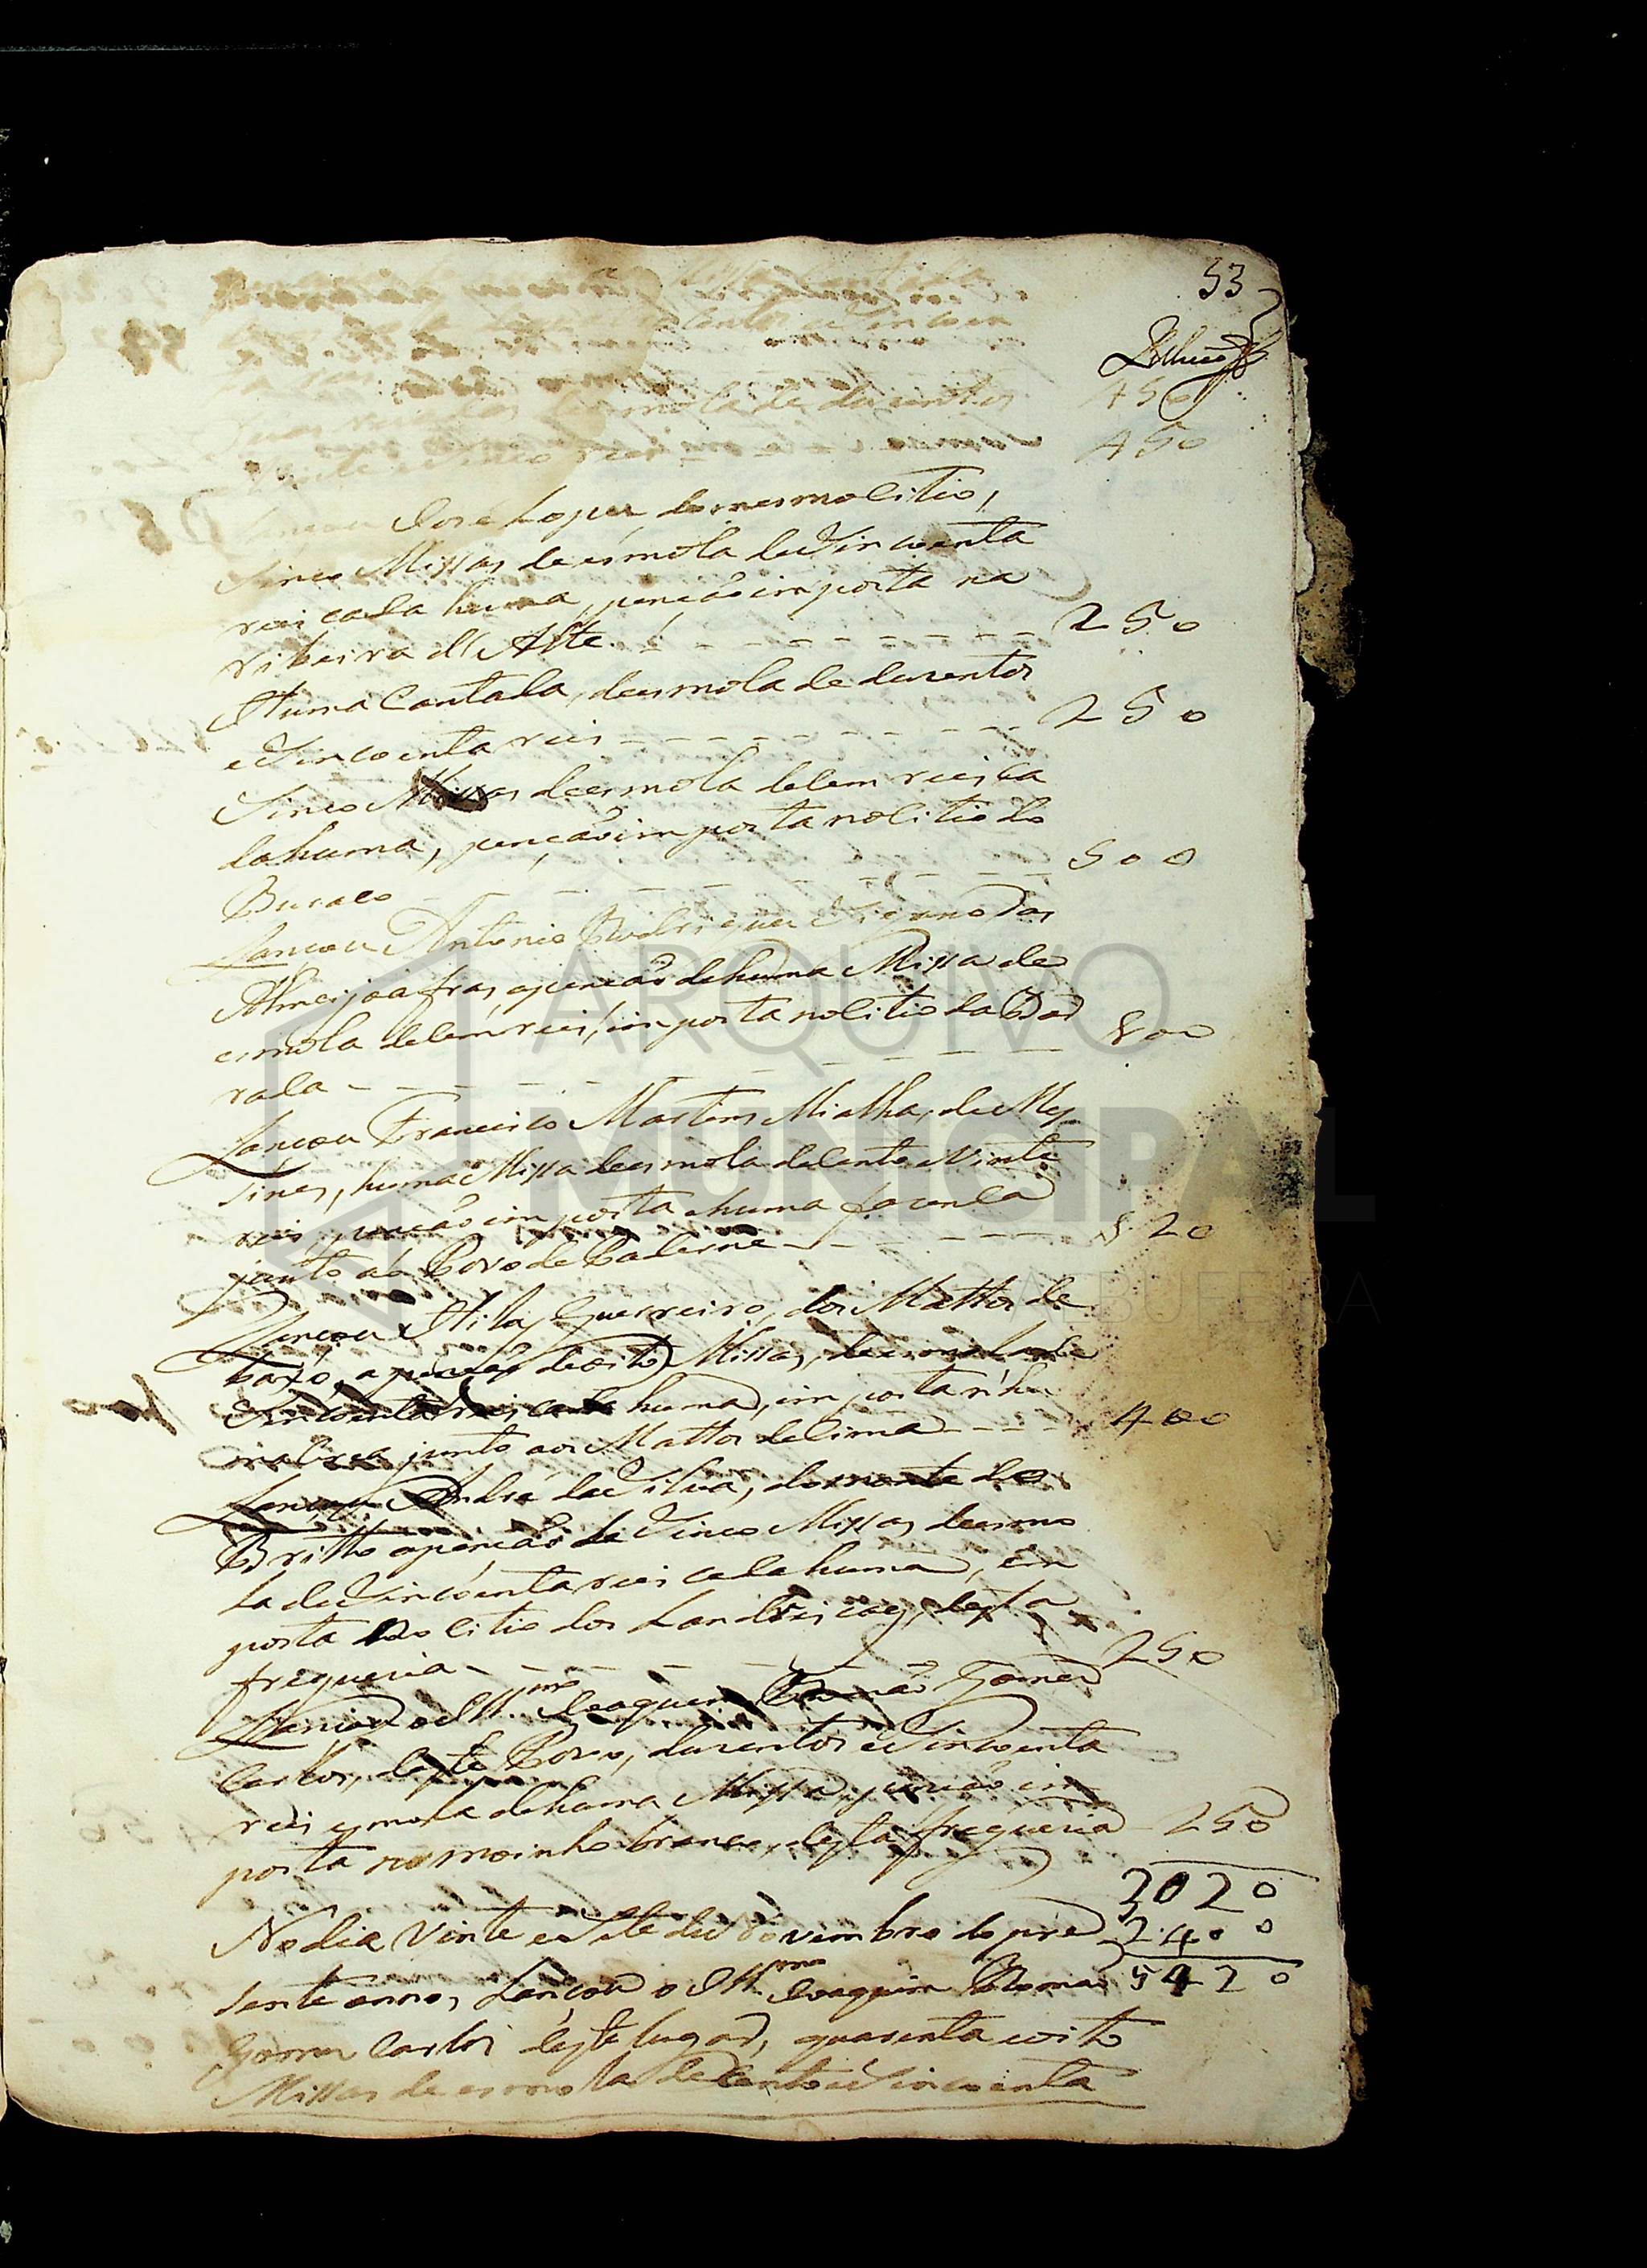 53
450
450
esmola de duzentos
vinte e sinco reis
Lançou Jose Lopes do mesmo citio,
Sinco Missas de esmola de Sincoenta
reis cada huma, penção imposta na
ribeira d'Alte. 250
Huma Cantada, de esmola de duzentos
e Sincoenta reis 250
Sinco Missas de esmola de Cem reis ca
da huma, penção imposta no citio do
Buraco 500
Lançou Antonio Rodrigues das
Almeijoafras, a penção de huma Missa de
esmola de Cem reis, imposta no citio da Par
rada 100
Lançou Francisco Martins Mialha, de Mes
sines, huma Missa de esmola de Cento e Vinte
reis, penção imposta a huma fazenda
junto ao Povo de Paderne 120
Lançou Guerreiro, dos Mattos de
baxo, a penção de oito Missas, de esmola de
Sincoenta reis cada huma, imposta
junto aos Mattos de Cima 400
Lançou André da Silva, do monte do
Britto a penção de Sinco Missas de esmo
la de Sincoenta reis cada huma, im
posta no citio dos desta
freguezia 250
Lançou o Ill.mo Joaquim Romão Gomes
Carlos, deste Povo, duzentos e Sincoenta
reis esmola de huma Missa penção im
posta no moinho branco, desta freguezia 250
3020
No dia Vinte e Sete de Novembro do pre 2400
sente anno, Lançou o Ill.mo Joaquim Romão 5420
Gomes Carlos deste lugar, quarenta e oito
Missas de esmola de Cento e Sincoenta
ARQUIVO
MUNICIPAL
ALBUFEIRA